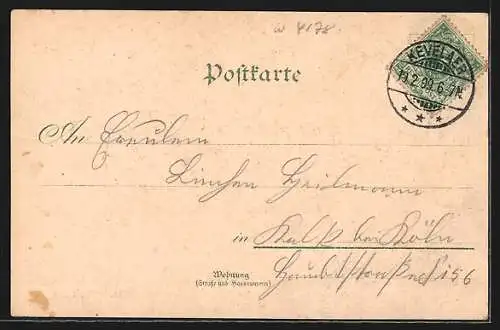 w 4178
Postkarte
KEVELAER
19.2.99.6-7N.
An Fräulein
Linchen Heilmann
in Kalk bei Köln
Wohnung
(Straße und Hausnummer)
Hauptstraße 156